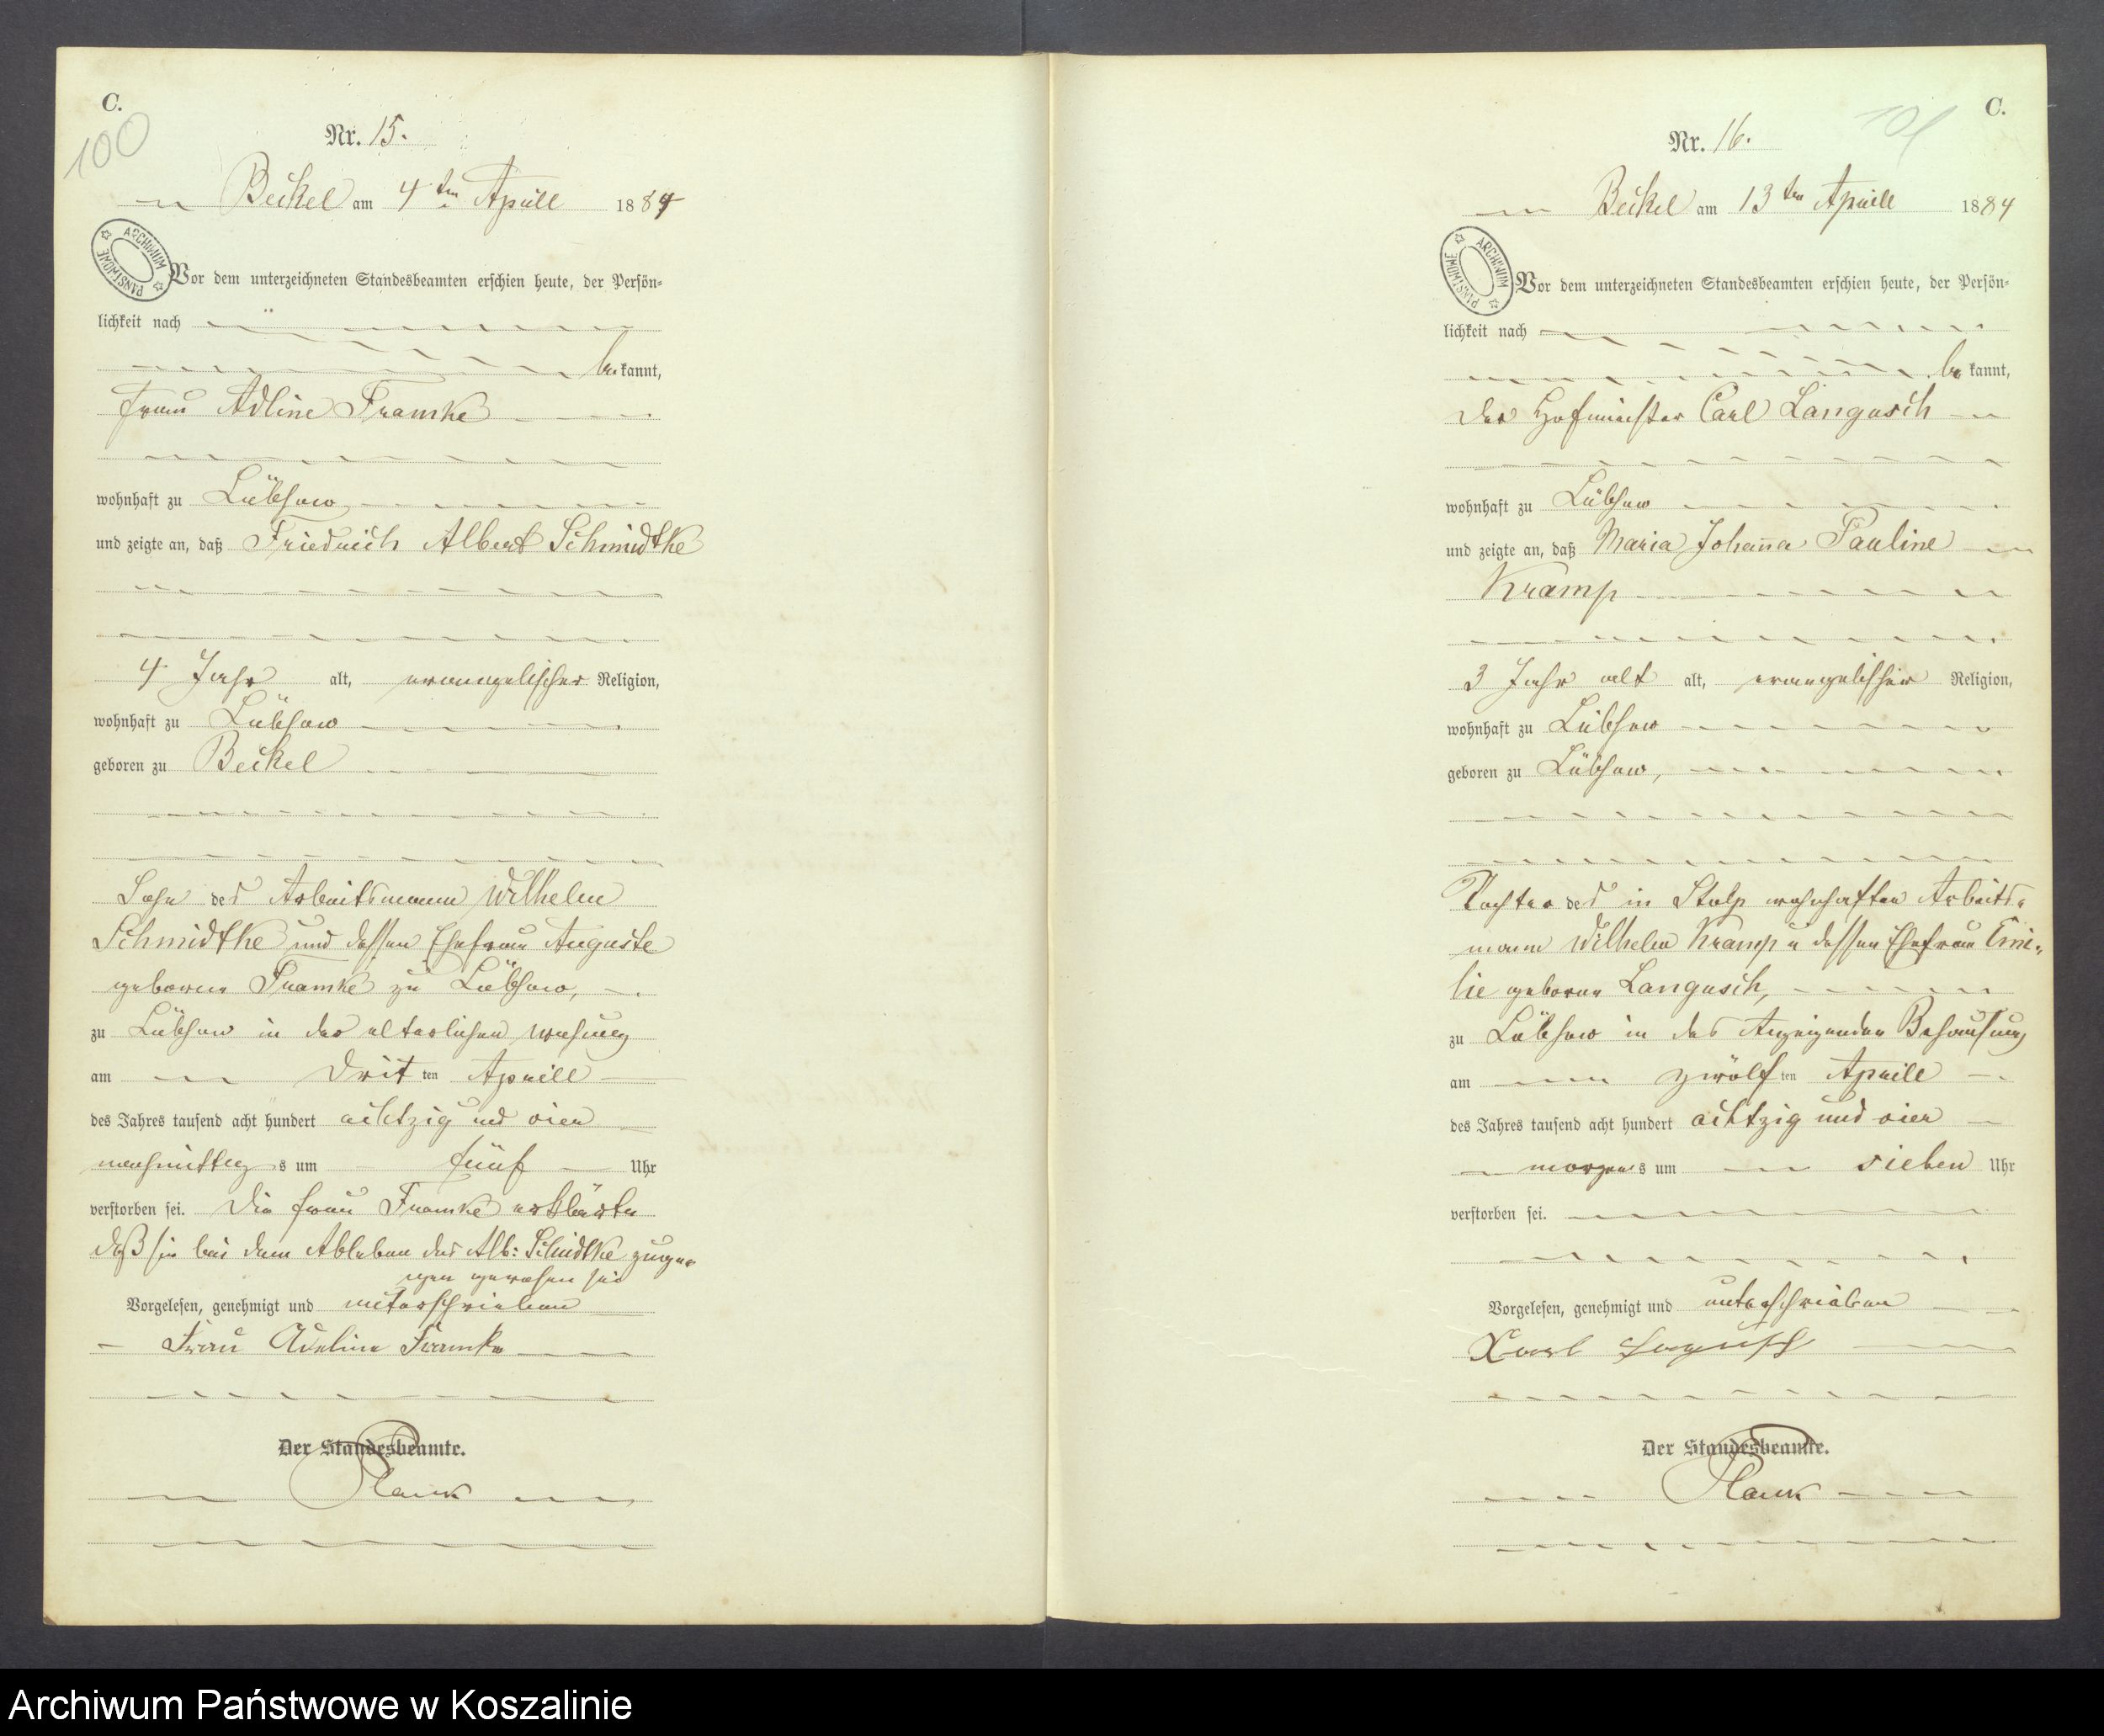 C.
100
Nr. 15.
Beckel am 4ten Aprill 1884
ARCHIWUM PAŃSTWOWE
Vor dem unterzeichneten Standesbeamten erschien heute, der Persön-
lichkeit nach
be kannt,
Frau Adline Framke
wohnhaft zu Lübsow
und zeigte an, daß Friedrich Albert Schmidtke
4 Jahr alt, evangelischer Religion,
wohnhaft zu Lübsow
geboren zu Beckel
Sohn des Arbeitsmann Wilhelm
Schmidtke und dessen Ehefrau Auguste
geborne Framke zu Lübsow,
zu Lübsow in der elterlichen Wohnung
am Drit ten Aprill
des Jahres tausend acht hundert achtzig und vier
nachmittag s um fünf Uhr
verstorben sei. Die Frau Framke erklärte
daß sie bei dem Ableben des Alb: Schmidtke zuge-
gen gewesen sei
Vorgelesen, genehmigt und unterschrieben
Frau Adeline Framke
Der Standesbeamte.
C.
101
Nr. 16.
Beckel am 13ten Aprill 1884
ARCHIWUM PAŃSTWOWE
Vor dem unterzeichneten Standesbeamten erschien heute, der Persön-
lichkeit nach
be kannt,
der Hofmeister Carl Langusch
wohnhaft zu Lübsow
und zeigte an, daß Maria Johanna Pauline
Kramp
3 Jahr alt alt, evangelischer Religion,
wohnhaft zu Lübsow
geboren zu Lübsow,
Tochter des in Stolp wohnhaften Arbeits-
mann Wilhelm Kramp u dessen Ehefrau Emi-
lie geborne Langusch,
zu Lübsow in des Anzeigenden Behausung
am zwölf ten Aprill
des Jahres tausend acht hundert achtzig und vier
morgens s um sieben Uhr
verstorben sei.
Vorgelesen, genehmigt und unterschrieben
Karl Langusch
Der Standesbeamte.
Archiwum Państwowe w Koszalinie